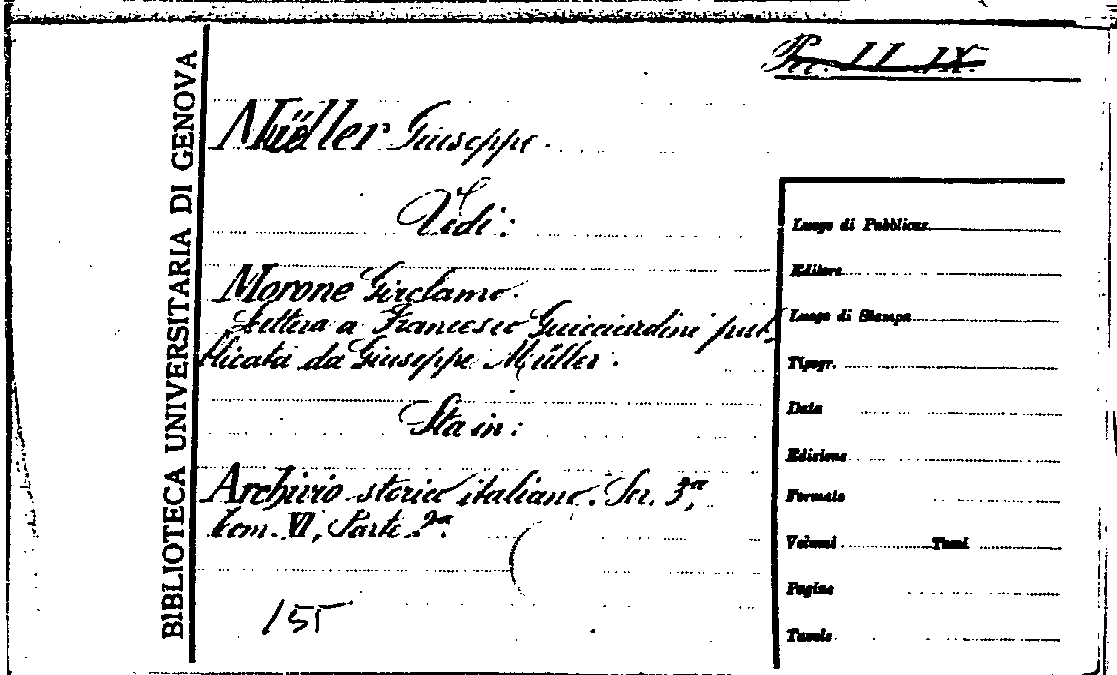 BIBLIOTECA UNIVERSITARIA DI GENOVA
Per. II IX.
Müller Giuseppe.
Vedi:
Morone Girolamo.
Lettera a Francesco Guicciardini pub-
blicata da Giuseppe Müller.
Sta in:
Archivio storico italiano. Ser. 3ª,
tom. VI, Parte 2ª.
155
Luogo di Pubblicaz.
Editore
Luogo di Stampa
Tipogr.
Data
Edizione
Formato
Volumi Tomi
Pagine
Tavole